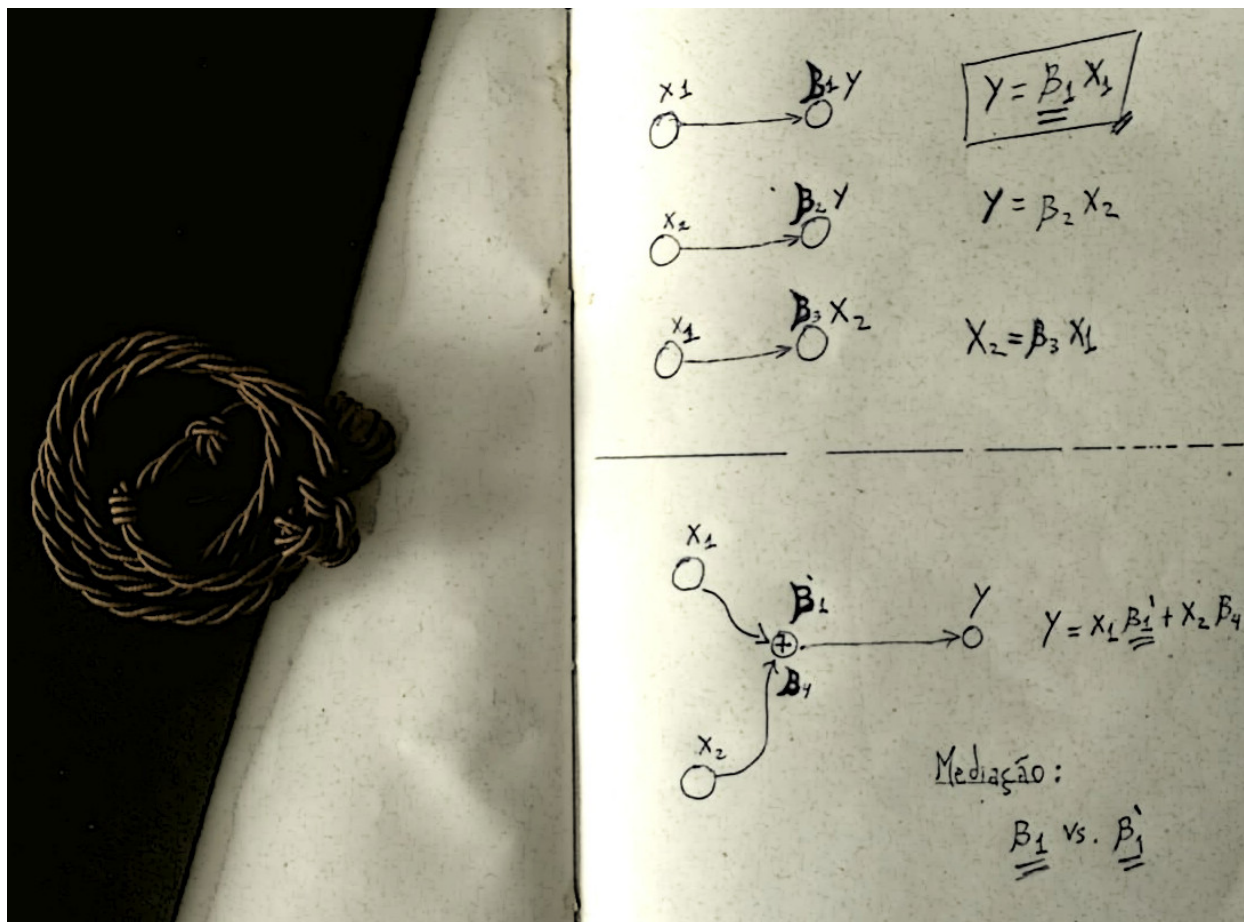 X1 β1 Y Y = β1 X1
X2 β2 Y Y = β2 X2
X1 β3 X2 X2 = β3 X1
X1
β`1 Y Y = X1 β1` + X2 β4
+
β4
X2
Mediação:
β1 vs. β`1